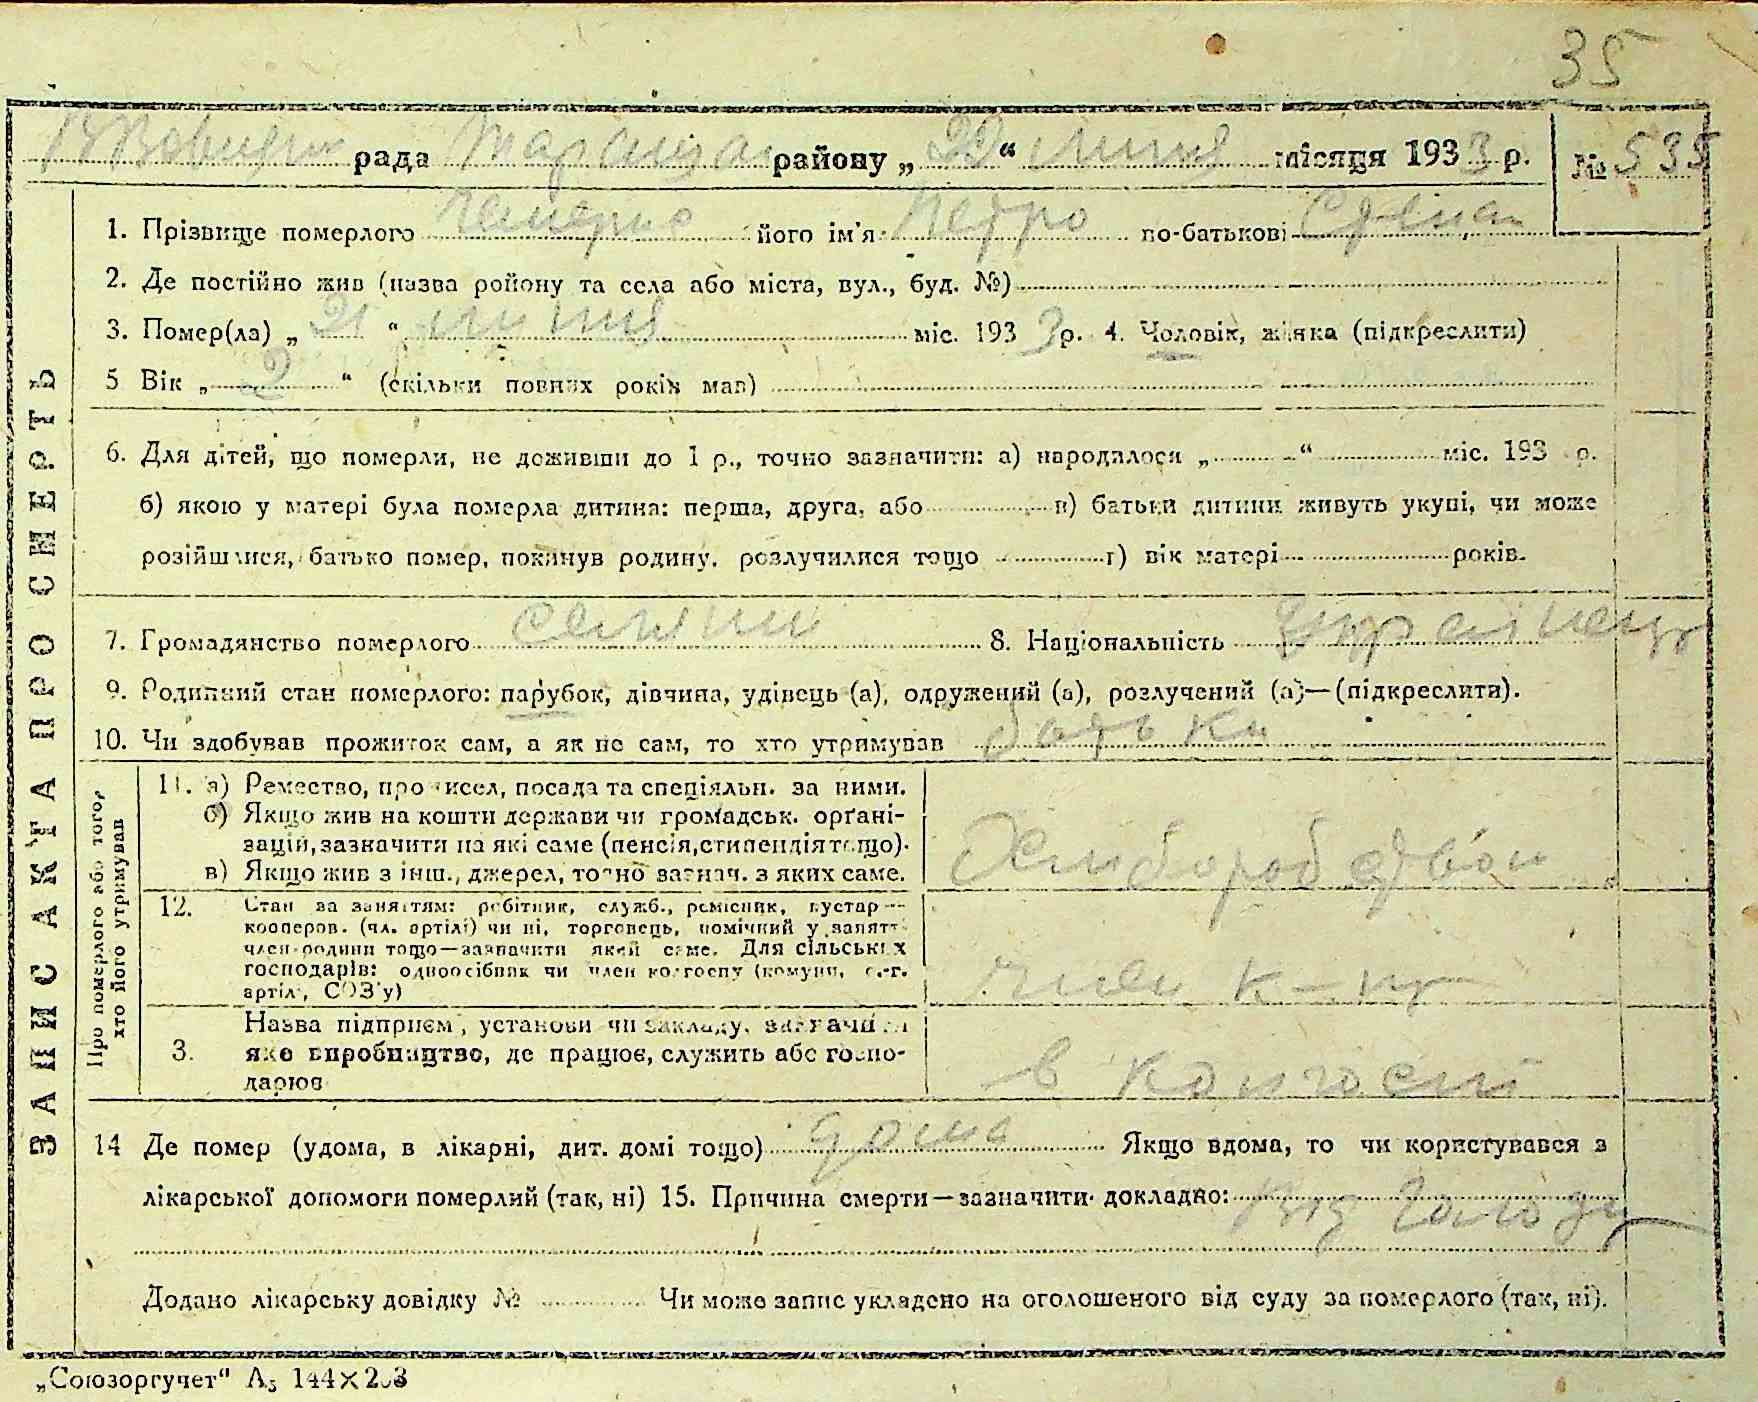 35
рада Таращан району „ 22 “ липня місяця 1933 р. № 535
1. Прізвище померлого його ім'я Петро по-батькові Степан
2. Де постійно жив (назва ройону та села або міста, вул., буд. №)
3. Помер(ла) „ 21 “ липня міс. 1933 р. 4. Чоловік, жінка (підкреслити)
5 Вік „ 2 “ (скільки повних років мав)
6. Для дітей, що померли, не доживши до 1 р., точно зазначити: а) народилося „ “ міс. 193 р.
б) якою у матері була померла дитина: перша, друга, або в) батьки дитини живуть укупі, чи може
розійшлися, батько помер, покинув родину, розлучилися тощо г) вік матері років.
7. Громадянство померлого селянин 8. Національність українець
9. Родинний стан померлого: парубок, дівчина, удівець (а), одружений (а), розлучений (а)—(підкреслити).
10. Чи здобував прожиток сам, а як не сам, то хто утримував батьки
ЗАПИС АКТА ПРО СМЕРТЬ
Про померлого або того, хто його утримував
11. а) Ремество, промисел, посада та спеціяльн. за ними.
б) Якщо жив на кошти держави чи громадськ. орґані-
зацій, зазначити на які саме (пенсія, стипендія тощо).
в) Якщо жив з інш., джерел, точно зазнач. з яких саме.
Хлібороб
12. Стан за заняттям: робітник, служб., ремісник, кустар—
кооперов. (чл. артілі) чи ні, торговець, помічний у занятт.
член родини тощо—зазначити який саме. Для сільських
господарів: одноосібник чи член колгоспу (комуни, с.-г.
артілі, СОЗ'у)
член к-пу
3. Назва підприєм., установи чи закладу, зазначити
яке виробництво, де працює, служить або госпо-
дарює
в колгоспі
14 Де помер (удома, в лікарні, дит. домі тощо) дома Якщо вдома, то чи користувався з
лікарської допомоги померлий (так, ні) 15. Причина смерти—зазначити докладно: Від голоду
Додано лікарську довідку № Чи може запис укладено на оголошеного від суду за померлого (так, ні).
„Союзоргучет“ А5 144×203